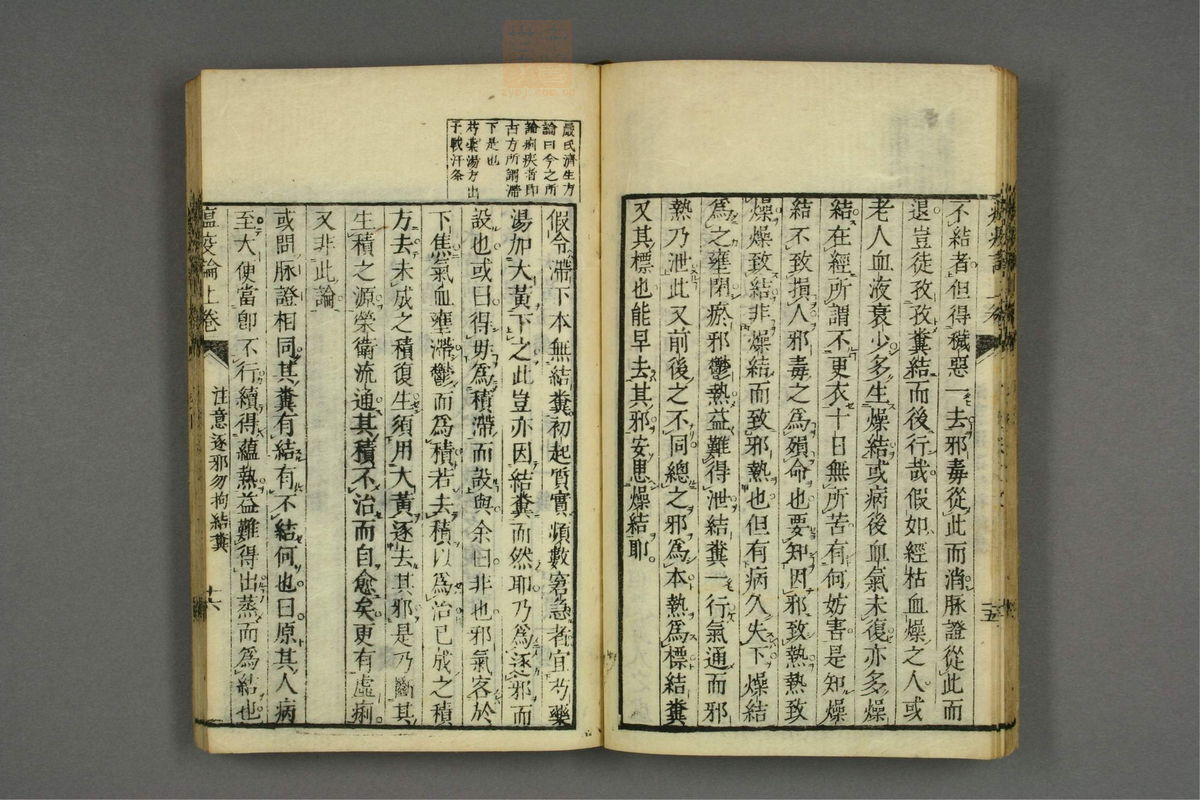 不結者但得穢惡一去邪毒從此而消脉證從此而
退豈徒孜孜糞結而後行哉假如經枯血燥之人或
老人血液衰少多生燥結或病後血氣未復亦多燥
結在經所謂不更衣十日無所苦有何妨害是知燥
結不致損人邪毒之爲殞命也要知因邪致熱熱致
燥燥致結非燥結而致邪熱也但有病久失下燥結
爲之壅閉瘀邪鬱熱益難得泄結糞一行氣通而邪
熱乃泄此又前後之不同總之邪爲本熱爲標結糞
又其標也能早去其邪安思燥結耶
嚴氏濟生方
論曰今之所
論痢疾者即
古方所謂滯
下是也
芍藥湯方出
于戰汗条
假令滯下本無結糞初起質實頻數窘急者宜芍藥
湯加大黃下之此豈亦因結糞而然耶乃爲逐邪而
設也或曰得毋爲積滯而設與余曰非也邪氣客於
下焦氣血壅滯鬱而爲積若去積以爲治已成之積
方去未成之積復生須用大黃逐去其邪是乃斷其
生積之源榮衛流通其積不治而自愈矣更有虛痢
又非此論
或問脉證相同其糞有結有不結何也曰原其人病
至大便當即不行續得蘊熱益難得出蒸而爲結也
瘟疫論上卷
注意逐邪勿拘結糞
十六